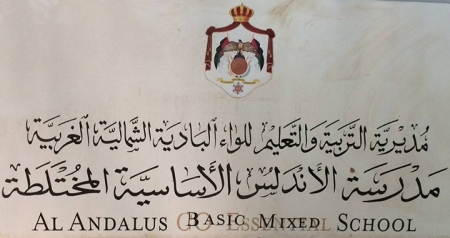 مديرية التربية والتعليم للواء البادية الشمالية الغربية
مدرسة الأندلس الأساسية المختلطة
AL ANDALUS BASIC MIXED SCHOOL